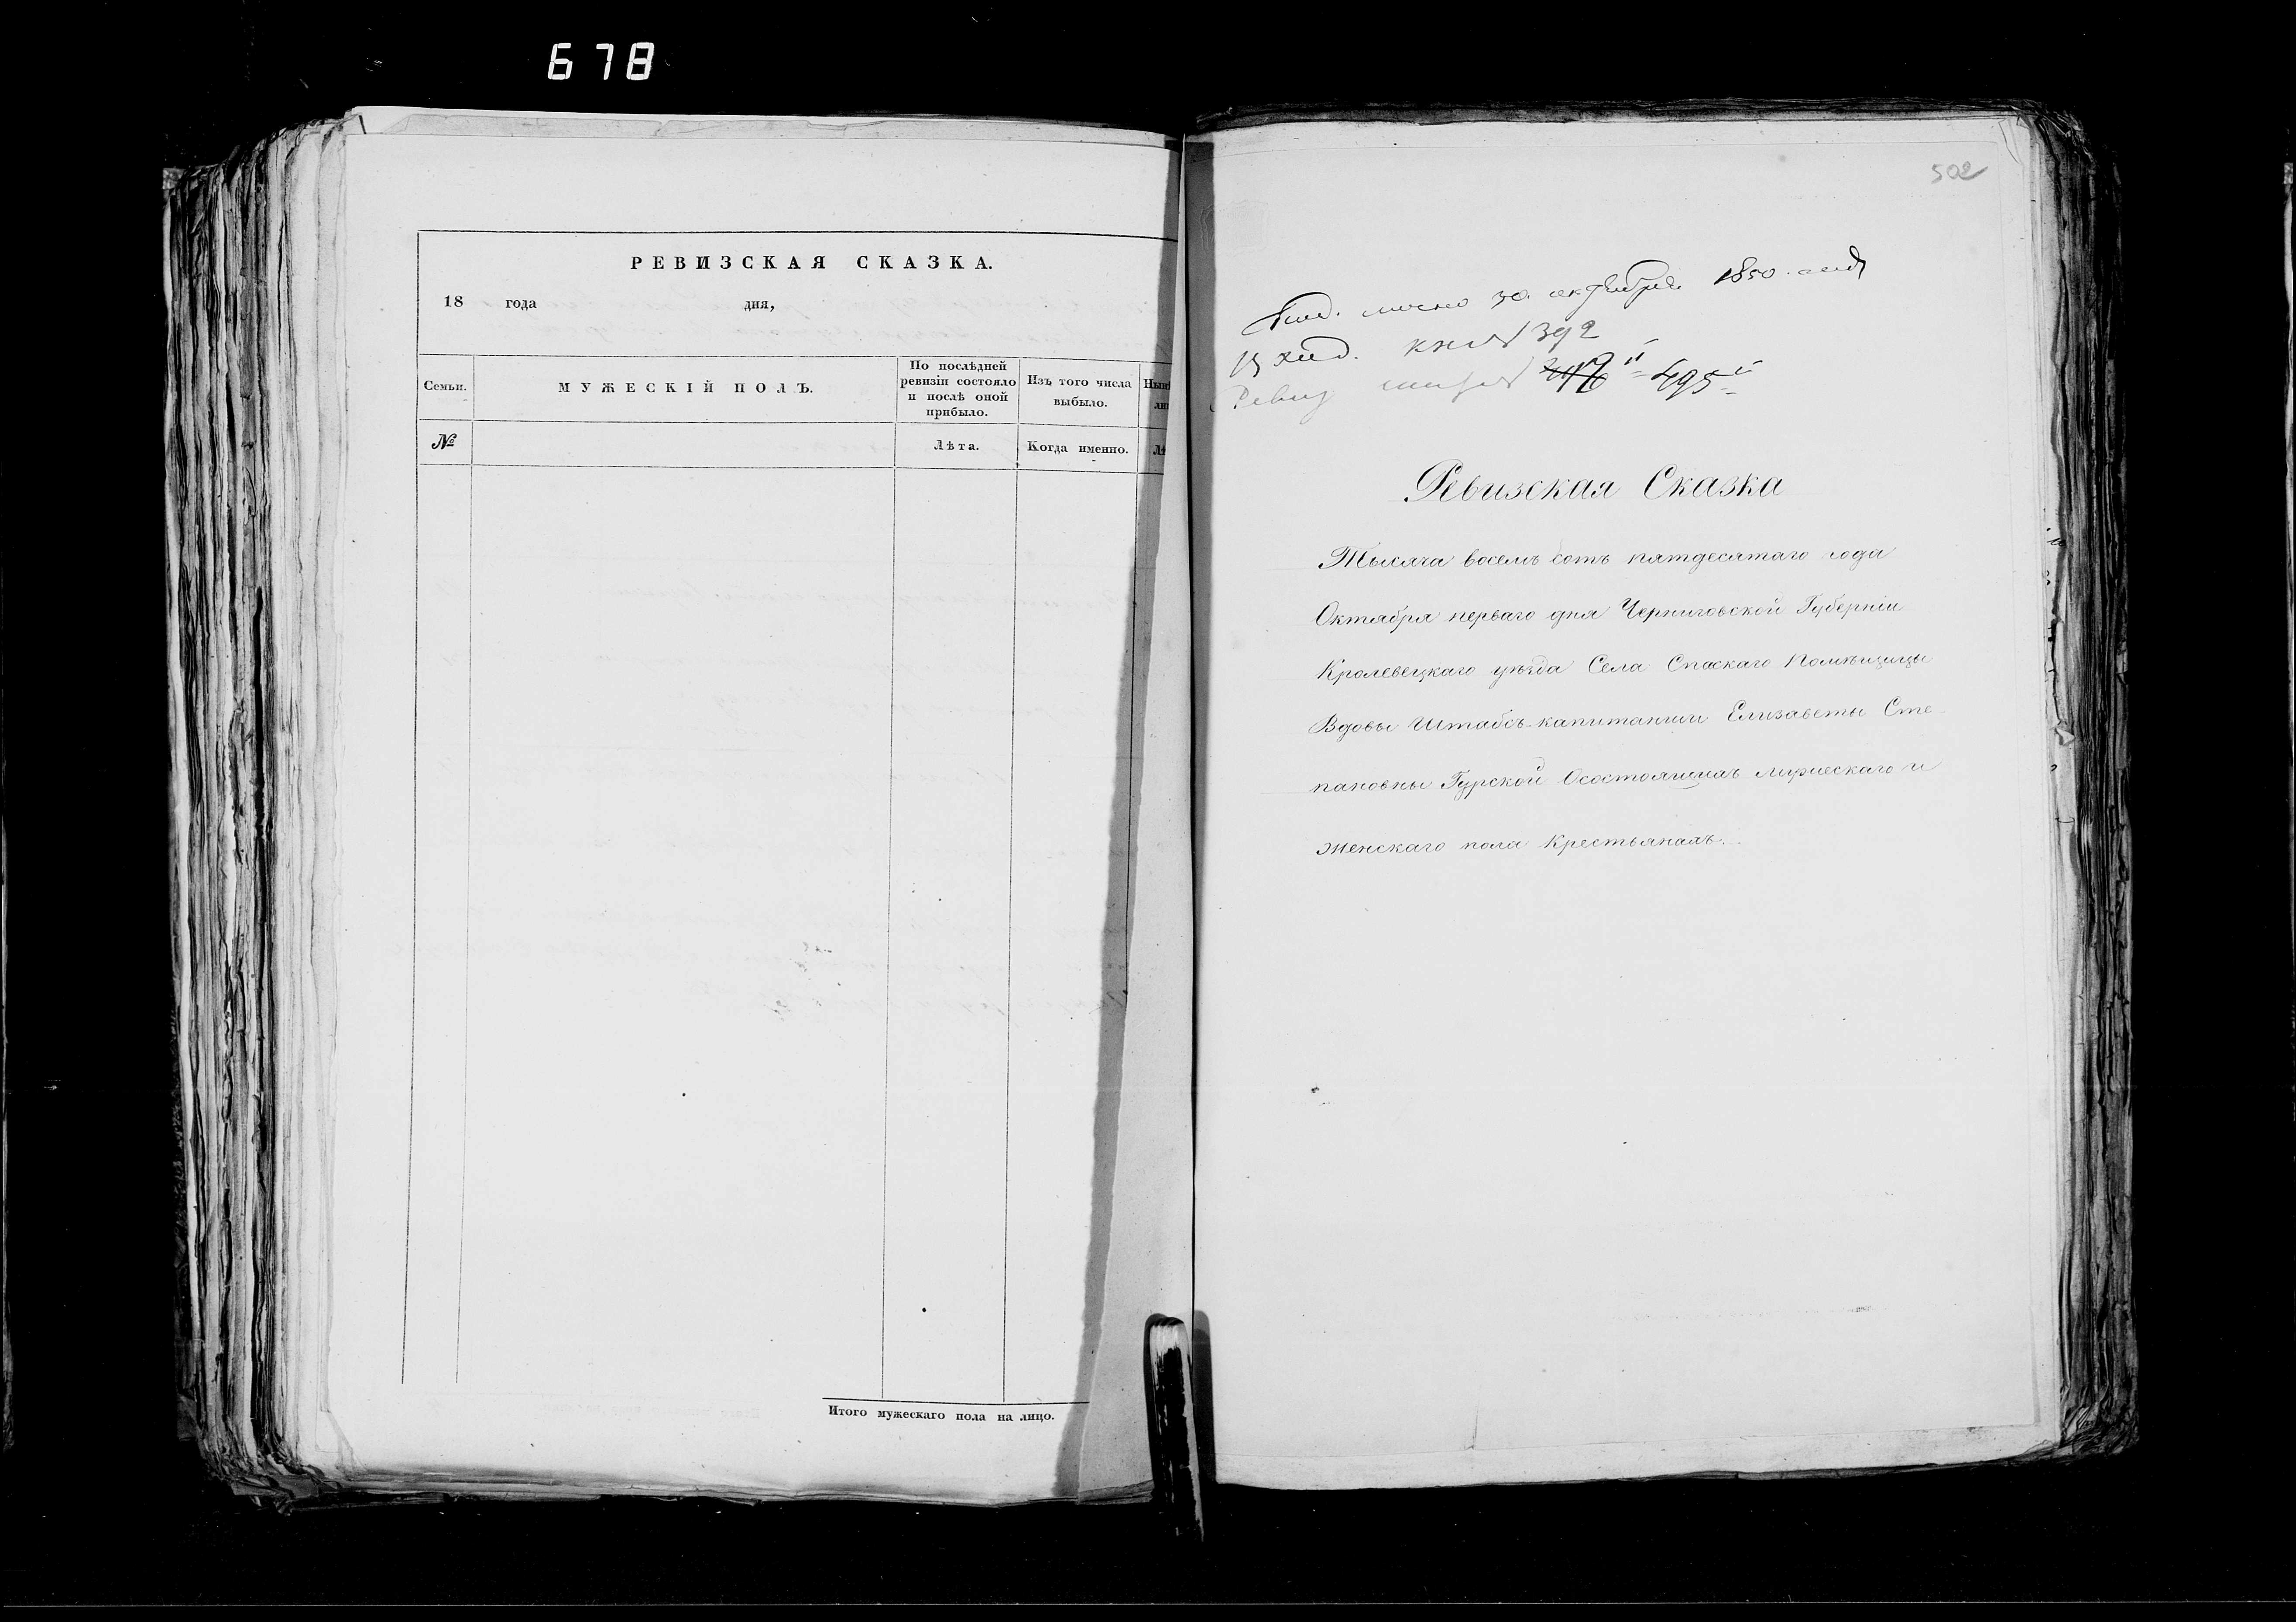 678
РЕВИЗСКАЯ СКАЗКА.
18 года дня,
Семьи.
МУЖЕСКІЙ ПОЛЪ.
По послѣдней
ревизіи состояло
и послѣ оной
прибыло.
Изъ того числа
выбыло.
№
Лѣта.
Когда именно.
Итого мужескаго пола на лицо.
502
Под. лично 30. октября. 1850. года
392
495
Ревизская Сказка
Тысяча восемъ сотъ пятдесятаго года
Октября перваго дня Черниговской Губерніи
Кролевецкаго уѣзда Села Спаскаго Помѣщицы
Вдовы Штабсъ-капитанши Елизаветы Сте-
пановны Гурской Осостоящихъ мужескаго и
женскаго пола Крестьянахъ.